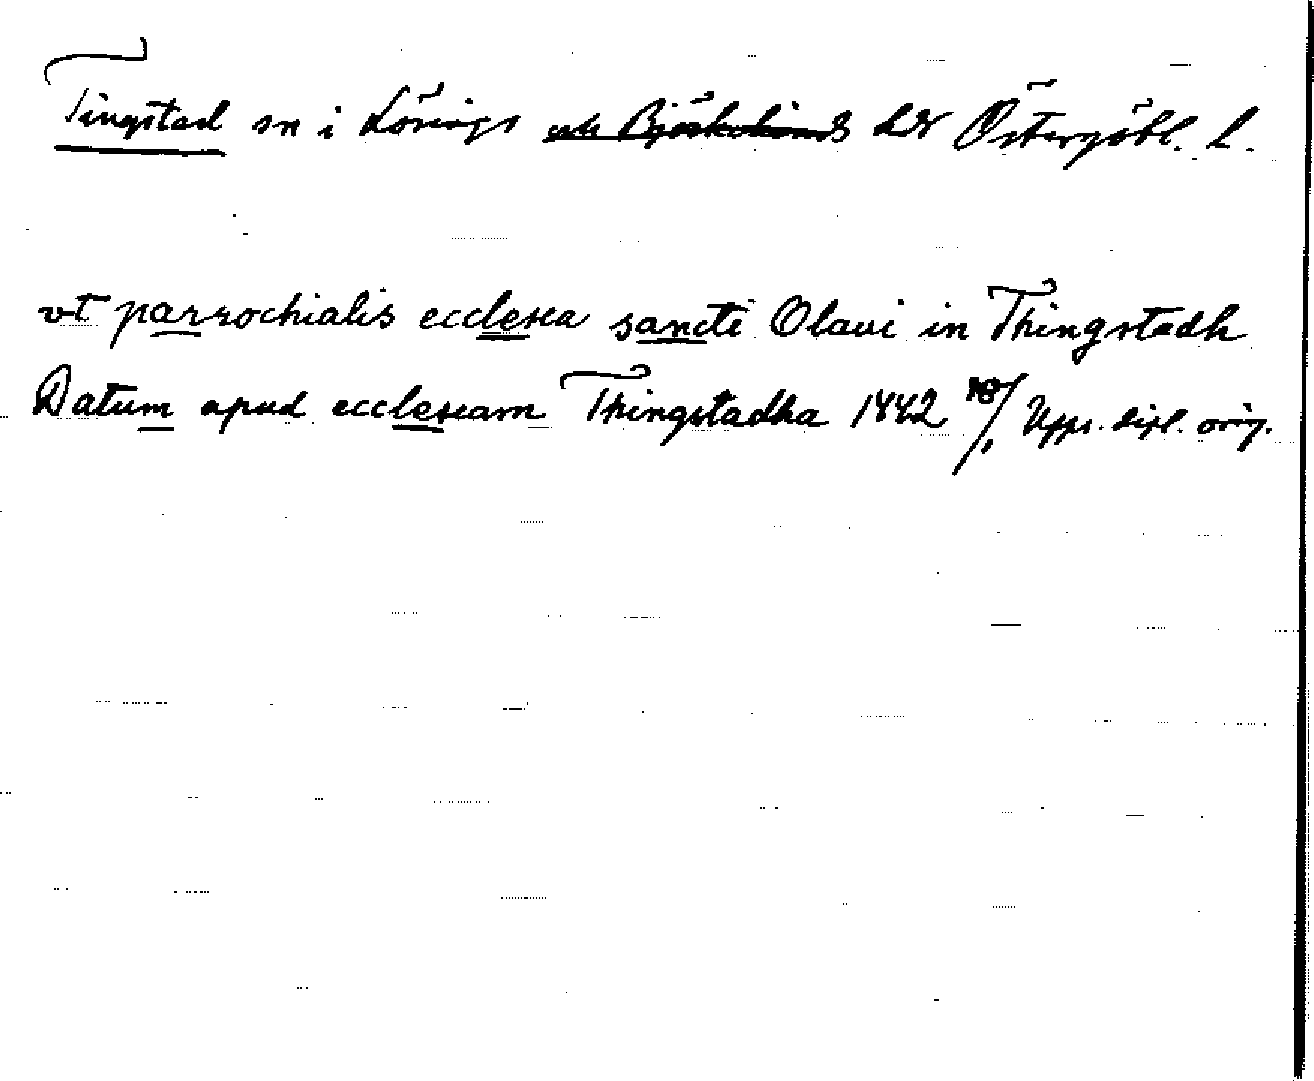 Tingstad sn i Lösings och Björkekinds hdr Östergötl. l.
vt parrochialis ecclesea sancti Olaui in Thingstadh
Datum apud eccleseam Thingstadha 1442 18/1 Upps. dipl. orig.